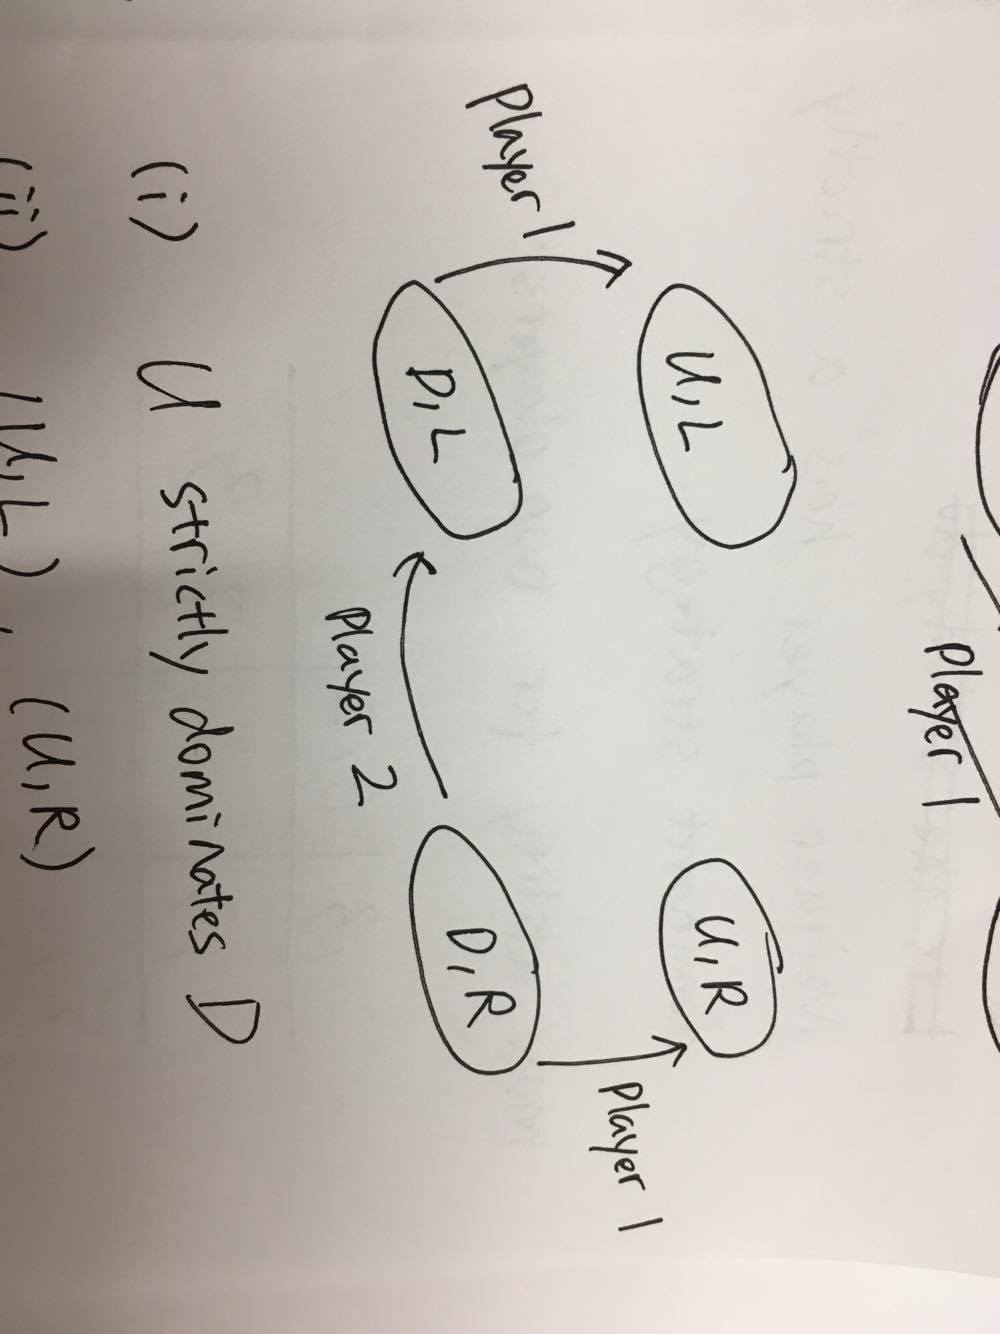 Player 1
U,L U,R
Player 1 Player 1
D,L D,R
Player 2
(i) U strictly dominates D
(ii) (U,L), (U,R)